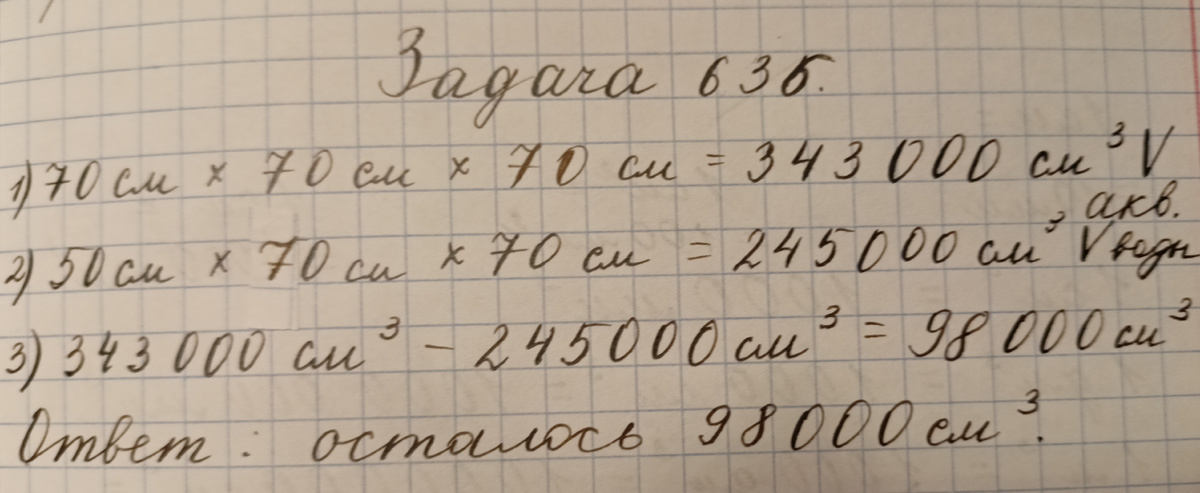 Задача 635.
1) 70 см × 70 см × 70 см = 343 000 см³ V акв.
2) 50 см × 70 см × 70 см = 245 000 см³, V воды
3) 343 000 см³ − 245000 см³ = 98 000 см³
Ответ: осталось 98000 см³.